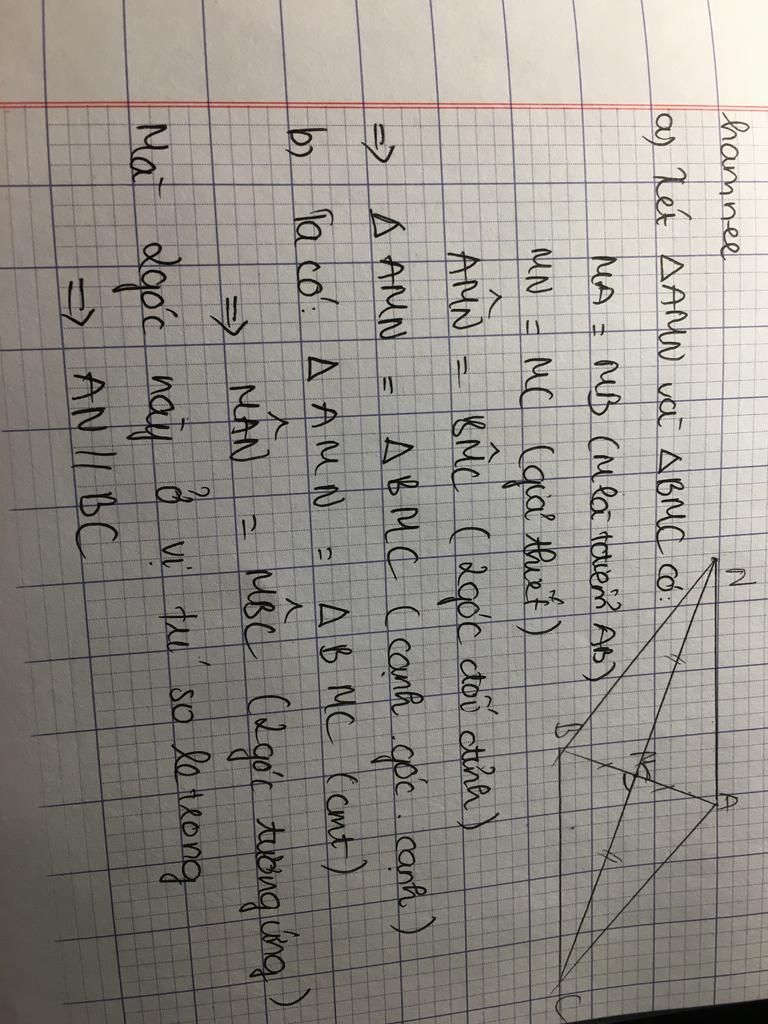 hamnee
a) Xét ΔAMN và ΔBMC có:
MA = MB (M là trung điểm AB)
MN = MC (giả thiết)
AM̂N = BM̂C (2 góc đối đỉnh)
=> ΔAMN = ΔBMC (cạnh. góc. cạnh)
b) Ta có: ΔAMN = ΔBMC (cmt)
=> MÂN = MB̂C (2 góc tương ứng)
Mà 2 góc này ở vị trí so le trong
=> AN // BC
N
A
M
B
C